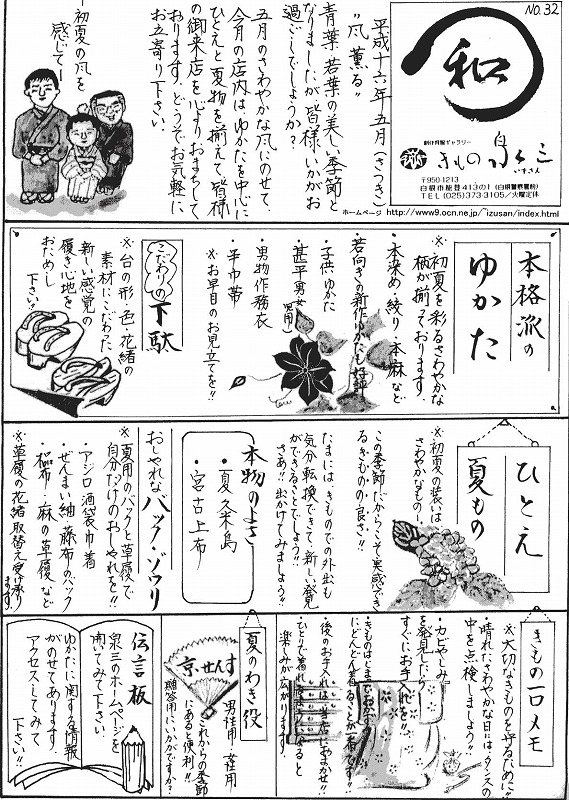 NO.32
和
創作呉服ギャラリー
きもの 泉三
いずさん
〒950-1213
白根市能登413の1(白根警察署前)
TEL (025)373-3105/火曜定休
ホームページ http://www9.ocn.ne.jp/~izusan/index.html
平成十六年 五月(さつき)
"風薫る"
青葉若葉の美しい季節と
なりましたが皆様いかがお
過ごしでしょうか?
五月のさわやかな風にのせて、
今月の店内はゆかたを中心に
ひとえと夏物を揃えて皆様
の御来店を心よりおまちして
おります。どうぞお気軽に
お立寄り下さい。
―初夏の風を
感じて―
本格派の
ゆかた
※初夏を彩るさわやかな
柄が揃っております。
・本染め・絞り・本麻など
・若向きの新作ゆかたも好評
・子供ゆかた
・甚平男女(児用)
・男物作務衣
・半巾帯
※お早目のお見立てを!!
こだわりの
下駄
※台の形・色・花緒の
素材にこだわった
新しい感覚の
履き心地を
おためし
下さい!!
ひとえ
夏もの
※初夏の装いは
さわやかなもの
この季節だからこそ実感でき
るきものの良さ!!
たまにはきものでの外出も
気分転換できて、新しい発見
ができることでしょう!!
さあ!!出かけてみましょう!!
本物のよさ
・夏久米島
・宮古上布
おしゃれなバック・ゾウリ
※夏用のバックと草履で
自分だけのおしゃれを!!
・アジロ酒袋巾着
・ぜんまい紬 藤布のバック
・麻の草履など
※草履の花緒取替え受け承り
ます。
きもの一口メモ
※大切なきものを守るために!!
・晴れたさわやかな日には、タンスの
中を点検しましょう!!
・カビやしみ
を発見したら
すぐにお手入れを!!
・きものはしまっておかず
にどんどん着ることが一番です!!
後のお手入れは当店におまかせ!!
・ひとりで着れるようになると
楽しみが広がります。
夏のわき役
京せんす
男性用・女性用
これからの季節
にあると便利!!
贈答用にいかがですか?
伝言板
泉三のホームページを
開いてみて下さい。
ゆかたに関する情報
がのせてあります。
アクセスしてみて
下さい!!